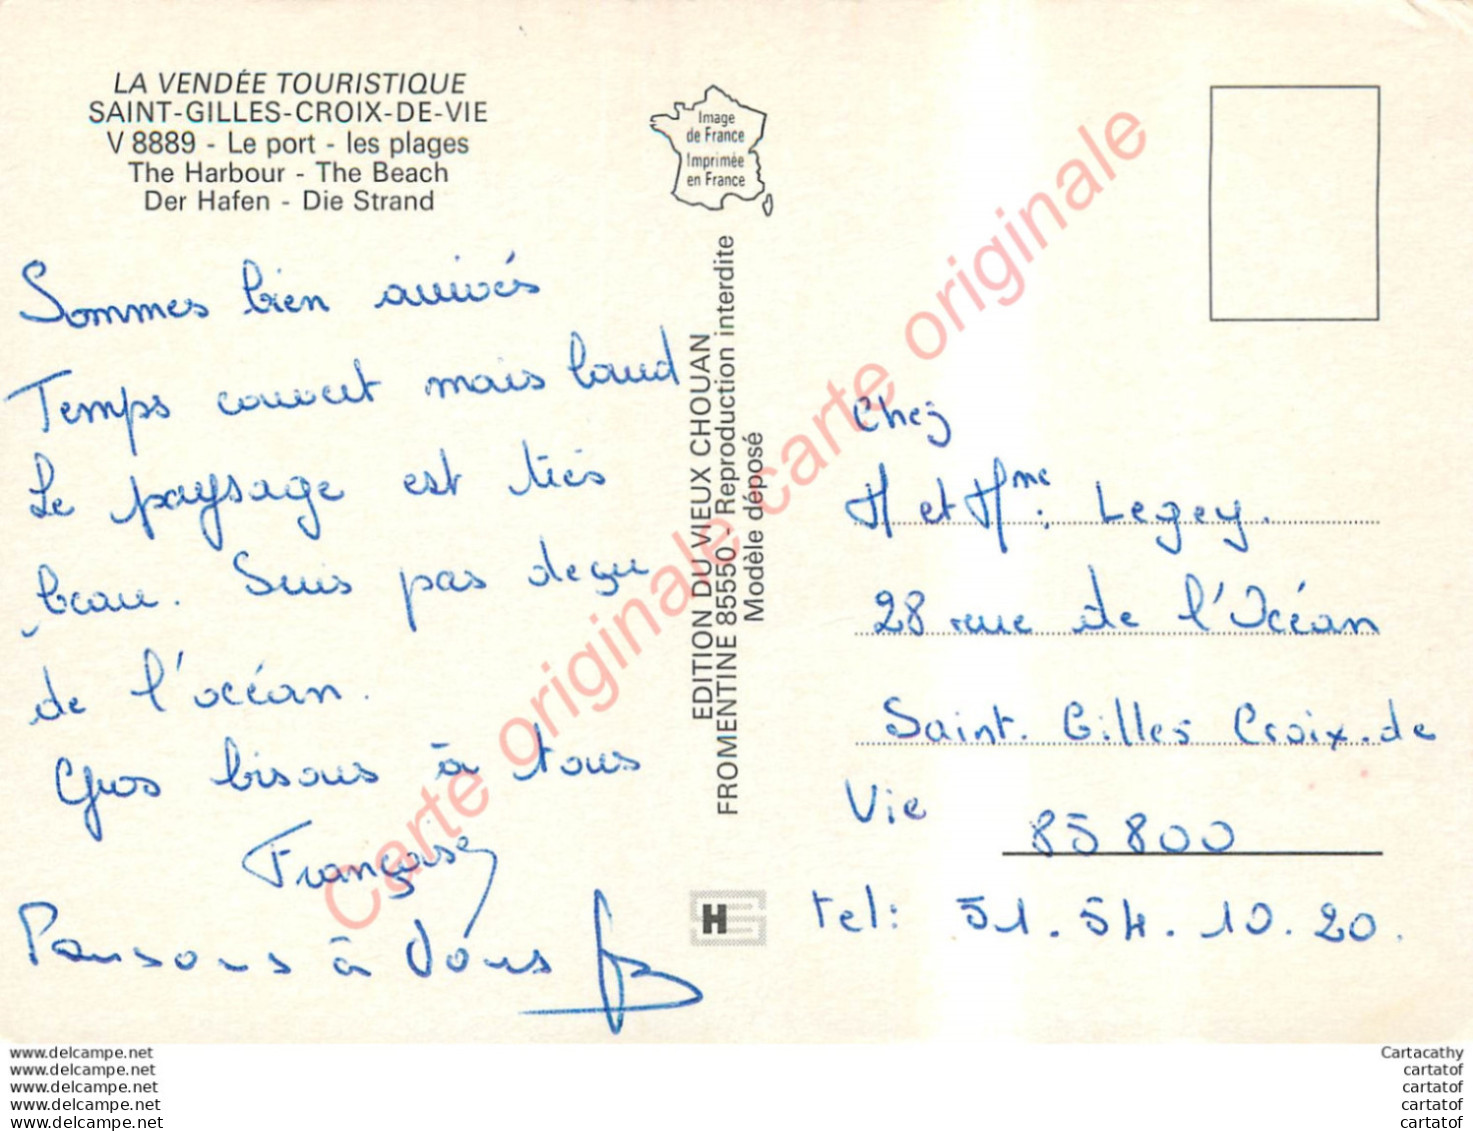 LA VENDÉE TOURISTIQUE
SAINT-GILLES-CROIX-DE-VIE
V 8889 - Le port - les plages
The Harbour - The Beach
Der Hafen - Die Strand
Image
de France
Imprimée
en France
Sommes bien arrivés
Temps couvert mais lourd
Le paysage est très
beau. Suis pas deçu
de l'océan.
Gros bisous à tous
Françoise
Pensons à vous
EDITION DU VIEUX CHOUAN
FROMENTINE 85550 - Reproduction interdite
Modèle déposé
Chez
M et Mme. Legey.
28 rue de l'Océan
Saint. Gilles Croix.de
Vie
85800
tel: 51.54.10.20.
H
Carte originale carte originale carte originale
www.delcampe.net
www.delcampe.net
www.delcampe.net
www.delcampe.net
www.delcampe.net
Cartacathy
cartatof
cartatof
cartatof
cartatof